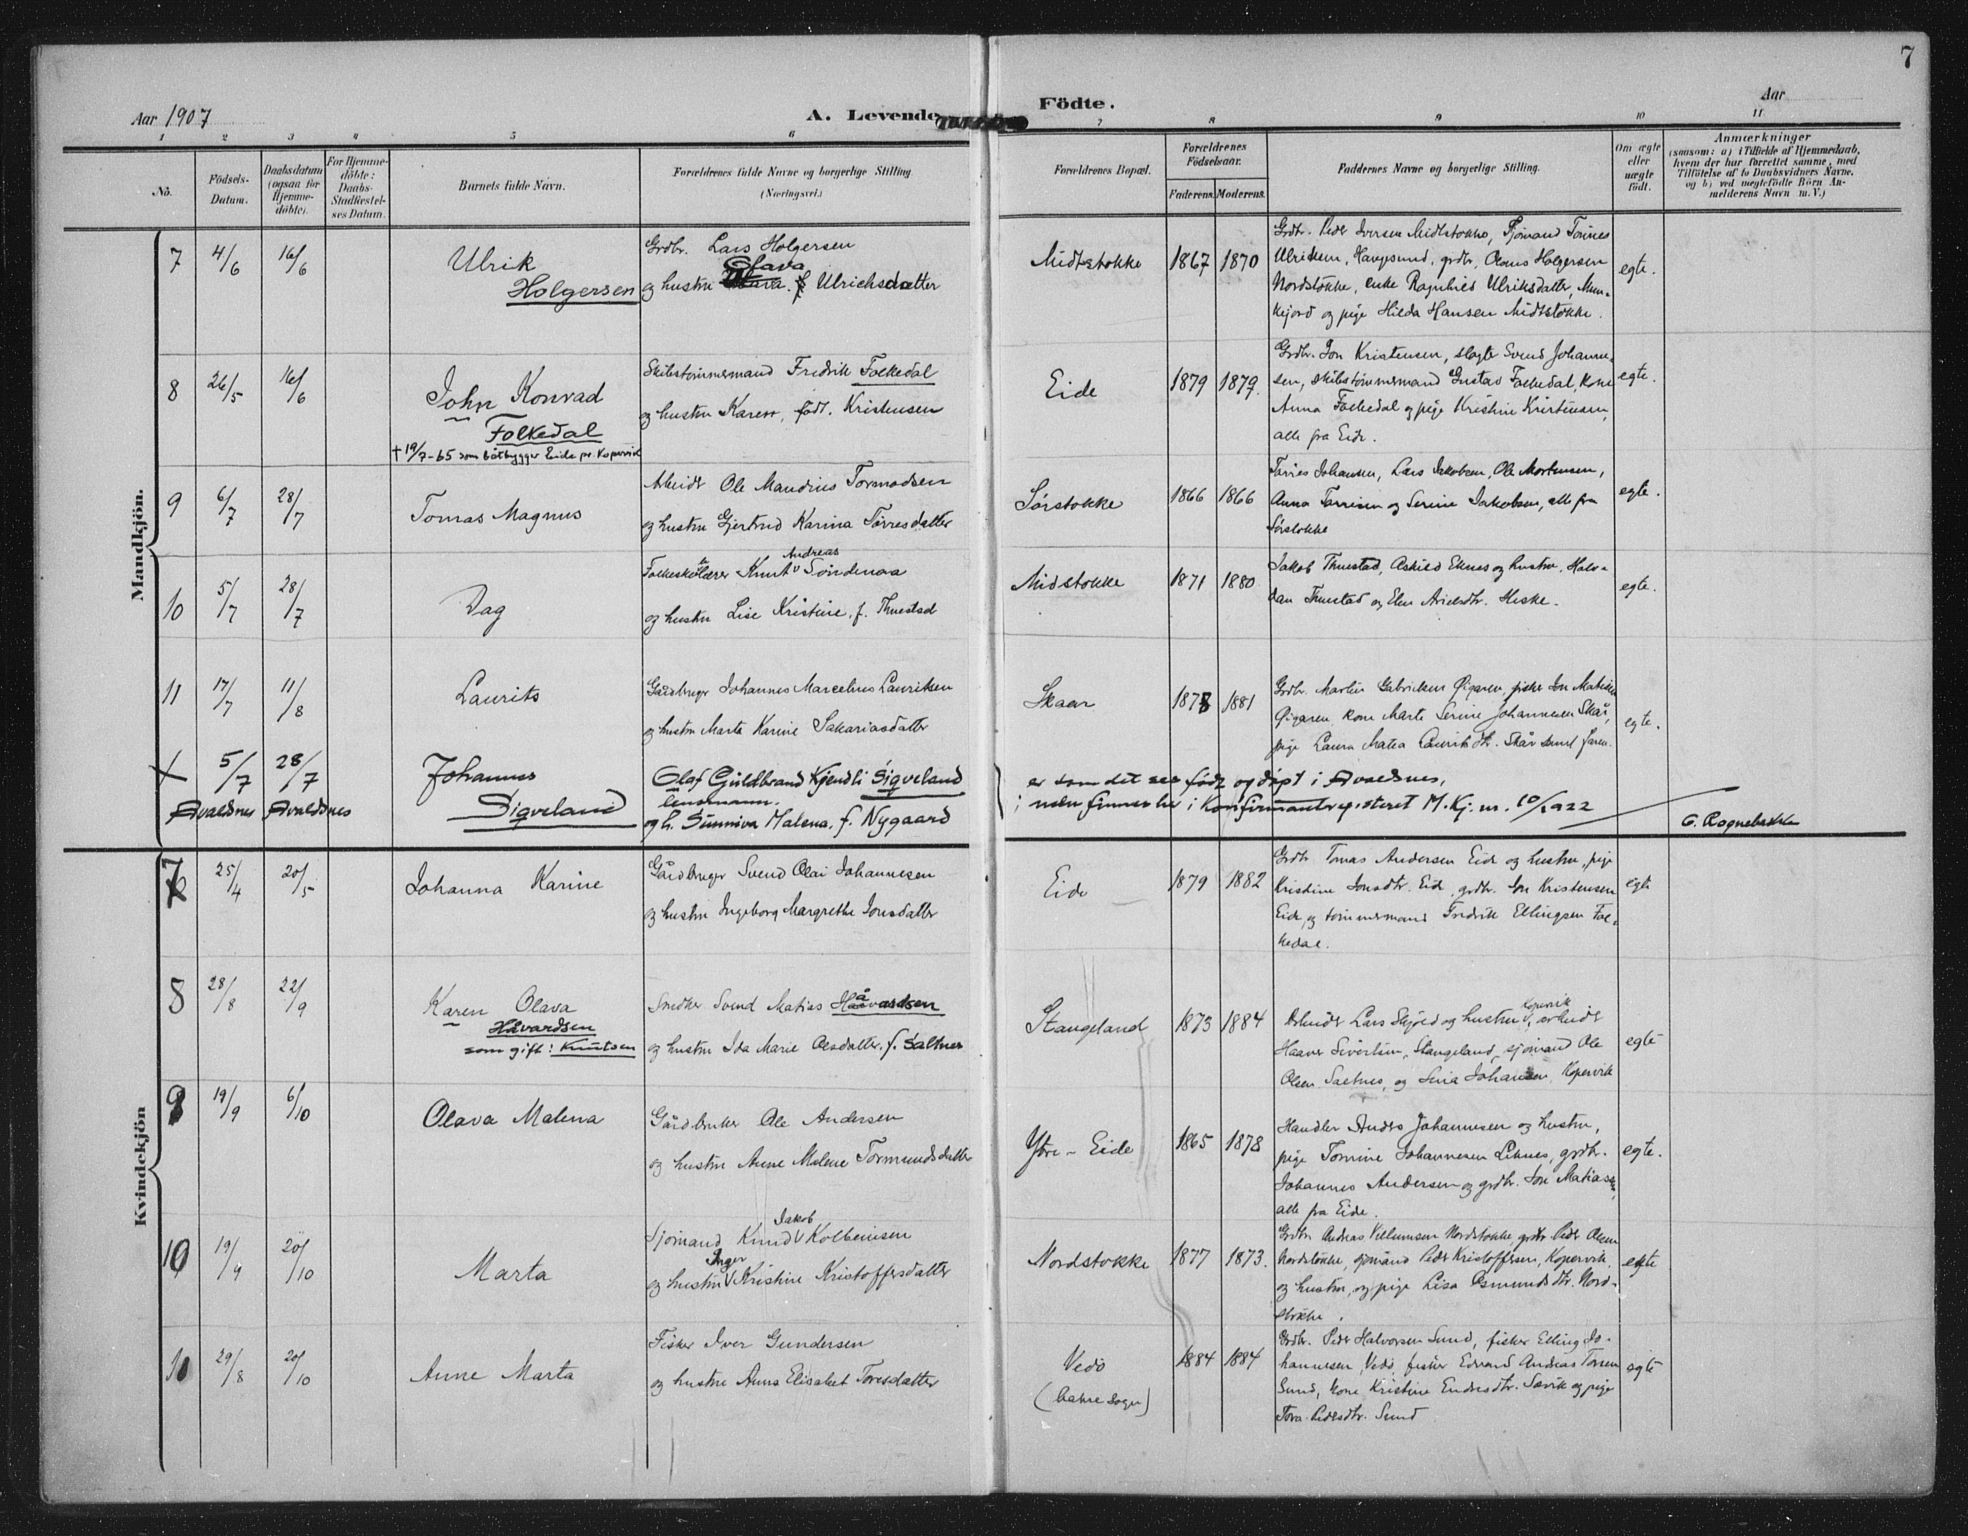 7
Aar 1907
A. Levende
Födte.
Aar
1 2 3 4 5 6 7 8 9 10 11
No.
Födsels-Datum.
Daabsdatum (ogsaa for Hjemme-döbte).
For Hjemme-döbte: Daabs-Stadfæstel-ses Datum.
Barnets fulde Navn.
Forældrenes fulde Navne og borgerlige Stilling (Næringsvei.)
Forældrenes Bopæl.
Forældrenes Födselsaar.
Faderens. Moderens.
Faddernes Navne og borgerlige Stilling.
Om ægte eller uægte födt.
Anmærkninger
(saasom: a) i Tilfælde af Hjemmedaab, hvem der har forrettet samme, med Tilföielse af to Daabsvidners Navne, og b) ved uægtefödte Börn An-melderens Navn m. V.)
Mandkjön.
7 4/6 16/6 Ulrik
Holgersen
Grdbr. Lars Holgersen
Olava
og hustru f. Ulrichsdatter
Midtstokke 1867 1870
Grdbr. Peder Iversen Midtstokke, Sjømand Tønnes
Ulriksen, Haugsund, grdbr. Olaus Holgersen
Nordstokke, enke Ragnhild Ulriksdatter, Mun-
kejord og pige Hilda Hansen Midtstokke.
egte.
8 26/5 16/6 John Konrad
Folkedal
† 19/7-65 som båtbygger Eide pr. Kopervik
Skibstømmermand Fredrik Folkedal
og hustru Karen, født Kristensen
Eide 1879 1879.
Grdbr. Jon Kristensen, slagter Svend Johanne-
sen, skibstømmermand Gustav Folkedal, kone
Anna Folkedal og pige Kristine Kristensen,
alle fra Eide.
egte.
9 6/7 28/7 Tomas Magnus
Arbeider Ole Mandius Tormodsen
og hustru Gjertrud Karina Tørresdatter
Sørstokke 1866 1866
Tørres Johansen, Lars Jakobsen, Ole Mortensen,
Anna Tørrisen og Serine Jakobsen, alle fra
Sørstokke
egte.
10 5/7 28/7 Dag
Andreas
Folkeskolelærer Knut Søndenaa
og hustru Lise Kristine, f. Thuestad
Midstokke 1871 1880
Jakob Thuestad, Askild Eknes og hustru, Halv-
dan Thuestad og Elen Arildsdtr. Heske.
egte.
11 17/7 11/8 Laurits
Gårdbruger Johannes Marcelius Lauritsen
og hustru Marta Karine Sakariasdatter
Skaar 1878 1881
Grdbr. Martin Gabrielsen Øigaren, fisker Jon Matisen
Øigaren, kone Marte Serine Johannesen Skår,
pige Laura Matea Lauritsdtr. Skår samt faren.
egte.
X 5/7 28/7 Johannes
Avaldsnes Avaldsnes
Sigveland
Olaf Guldbrand Kjendli Sigveland
lensmann.
og h. Sunniva Malena, f. Nygaard
er som det sees født og døpt i Avaldsnes,
men finnes her i Konfirmantregisteret M.Kj. nr. 10/1922
G. Rognebakke
Kvindekjön
7 25/4 20/5 Johanna Karine
Gårdbruger Svend Olai Johannesen
og hustru Ingeborg Margrethe Jonsdatter
Eide 1879 1882
Grdbr. Tomas Andersen Eide og hustru, pige
Kristine Jonsdtr. Eide, grdbr. Jon Kristensen
Eide, og tømmermand Fredrik Ellingsen Fol-
kedal.
egte
8 28/8 22/9 Karen Olava
Håvardsen
som gift: Knutsen
Snedker Svend Matias Håvardsen
og hustru Ida Marie Olsdatter, f. Saltnes
Stangeland 1873 1884
Kopervik
Arbeider Lars Skjold og hustru, arbeider
Haaver Sivertsen, Stangeland, sjømand Ole
Olsen Saltnes, og Sina Johansen, Kopervik
egte
9 19/9 6/10 Olava Malena
Gårdbruker Ole Andersen
og hustru Anne Malene Tormundsdatter
Ytre-Eide 1865 1878
Handler Anders Johannesen og hustru,
pige Tomine Johannesen Liknes, grdbr.
Johannes Andersen og grdbr. Jon Matiassen,
alle fra Eide.
egte.
10 19/9 20/10 Marta
Jakob
Sjømand Knud Kolbeinsen
Inger
og hustru Kristine Kristoffersdatter
Nordstokke 1877 1873.
Grdbr. Andreas Villumsen Nordstokke, grdbr. Peder Olsen
Nordstokke, sjømand Peder Kristoffersen, Kopervik,
og hustru, og pige Lisa Osmundsdtr. Nord-
stokke.
egte
29/8 20/10 Anne Marta
Fisker Iver Gundersen
og hustru Anna Elisabet Toresdatter
Vedø
(bakre sogn)
1884 1884
Grdbr. Peder Halvorsen Sund, fisker Elling Jo-
hannesen, Vedø, fisker Edvard Andreas Torsen
Sund, kone Kristine Endresdtr. Sævik og pige
Tora Pedersdtr. Sund
egte